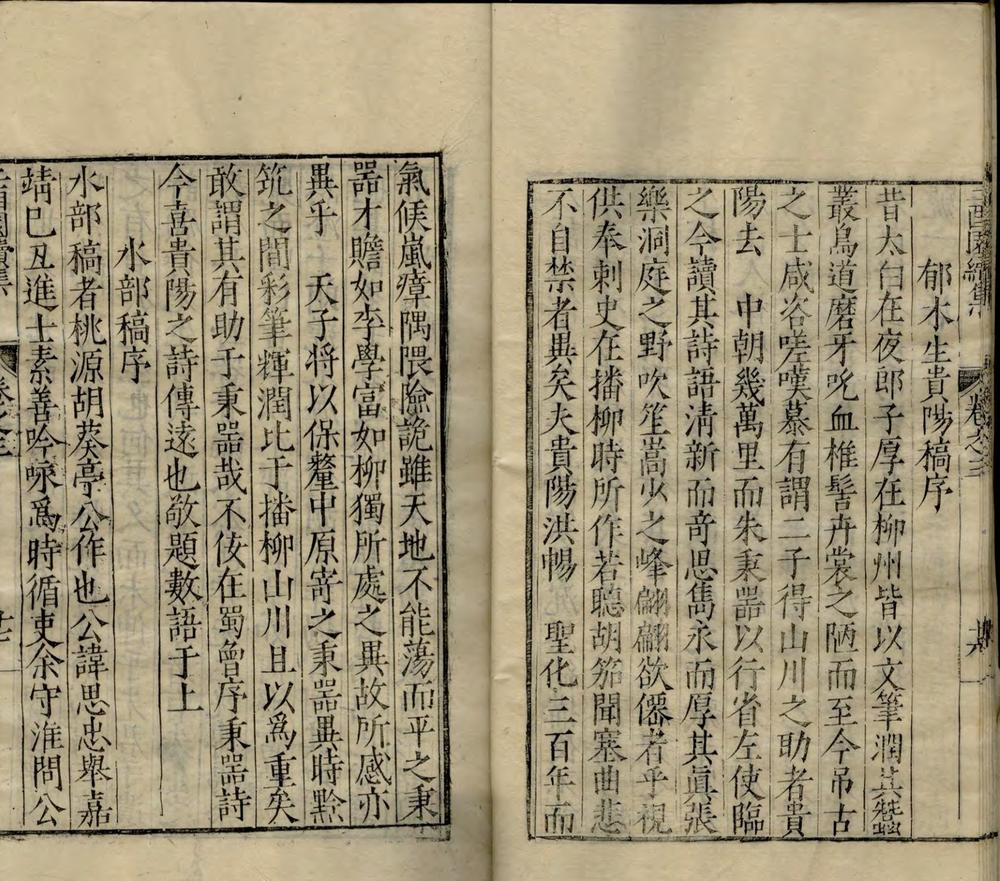 郁木生貴陽稿序
昔太白在夜郎子厚在柳州皆以文筆潤其巖
叢鳥道磨牙吮血椎髻卉裳之陋而至今吊古
之士咸咨嗟嘆慕有謂二子得山川之助者貴
陽去 中朝幾萬里而朱秉器以行省左使臨
之今讀其詩語清新而奇思雋永而厚其眞張
樂洞庭之野吹笙嵩少之峰翩翩欲僊者乎視
供奉刺史在播柳時所作若聽胡笳聞塞曲悲
不自禁者異矣夫貴陽洪暢 聖化三百年而
卷之三
氣候嵐瘴隅隈險詭雖天地不能蕩而平之秉
器才贍如李學富如柳獨所處之異故所感亦
異乎 天子將以保釐中原寄之秉器異時黔
筑之間彩筆輝潤比于播柳山川且以爲重矣
敢謂其有助于秉器哉不佞在蜀曾序秉器詩
今喜貴陽之詩傳遠也敬題數語于上
水部稿序
水部稿者桃源胡葵亭公作也公諱思忠舉嘉
靖巳丑進士素善吟咏爲時循吏余守淮問公
卷之三